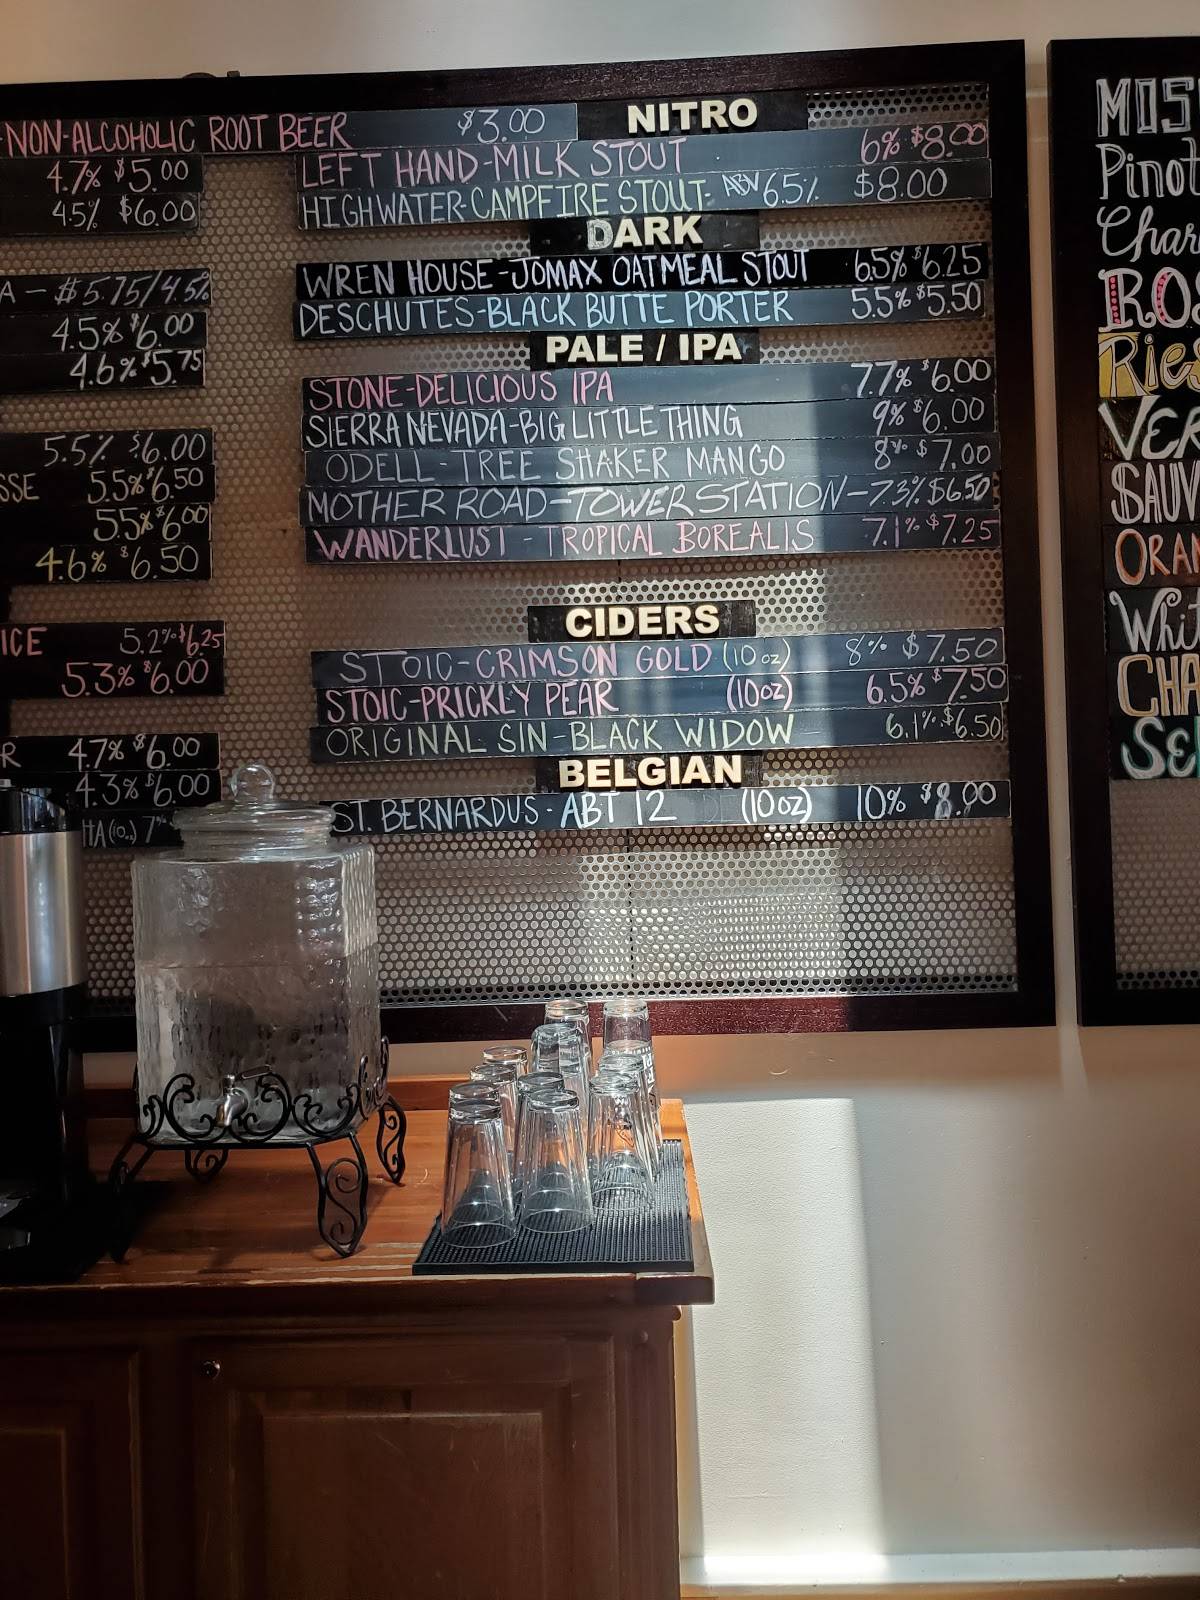 -NON-ALCOHOLIC ROOT BEER $3.00
4.7% $5.00
4.5% $6.00
A - $5.75/4.5%
4.5% $6.00
4.6% $5.75
5.5% $6.00
SSE 5.5% $6.50
5.5% $6.00
4.6% $6.50
ICE 5.2% $6.25
5.3% $6.00
R 4.7% $6.00
4.3% $6.00
HA 7%
NITRO
LEFT HAND-MILK STOUT 6% $8.00
HIGHWATER-CAMPFIRE STOUT- ABV 6.5% $8.00
DARK
WREN HOUSE-JOMAX OATMEAL STOUT 6.5% $6.25
DESCHUTES-BLACK BUTTE PORTER 5.5% $5.50
PALE / IPA
STONE-DELICIOUS IPA 7.7% $6.00
SIERRA NEVADA-BIG LITTLE THING 9% $6.00
ODELL-TREE SHAKER MANGO 8% $7.00
MOTHER ROAD-TOWER STATION-7.3% $6.50
WANDERLUST - TROPICAL BOREALIS 7.1% $7.25
CIDERS
STOIC-CRIMSON GOLD (10oz) 8% $7.50
STOIC-PRICKLY PEAR (10oz) 6.5% $7.50
ORIGINAL SIN-BLACK WIDOW 6.1% $6.50
BELGIAN
ST. BERNARDUS- ABT 12 (10oz) 10% $8.00
MOS
Pinot
Char
ROS
Ries
VER
SAUV
ORAN
Whi
CHA
Sel